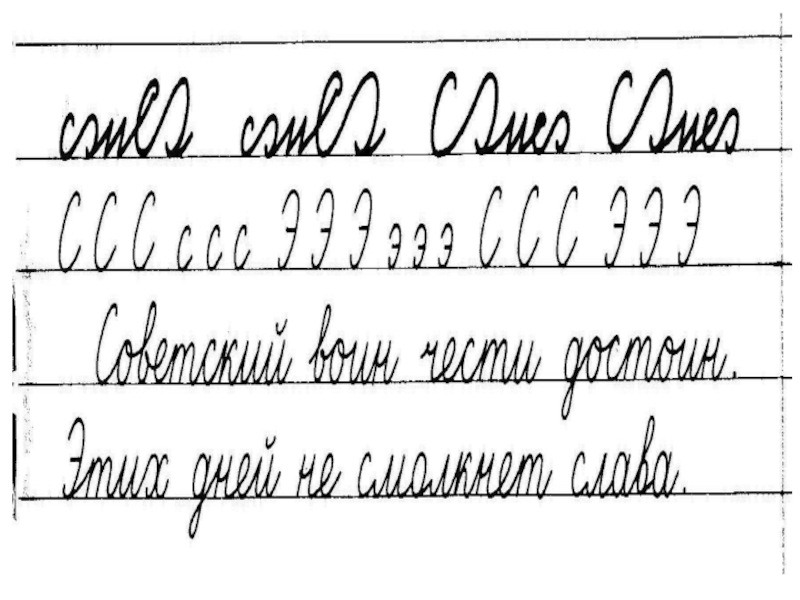 С С С с с с Э Э Э э э э С С С Э Э Э
Советский воин чести достоин.
Этих дней не смолкнет слава.